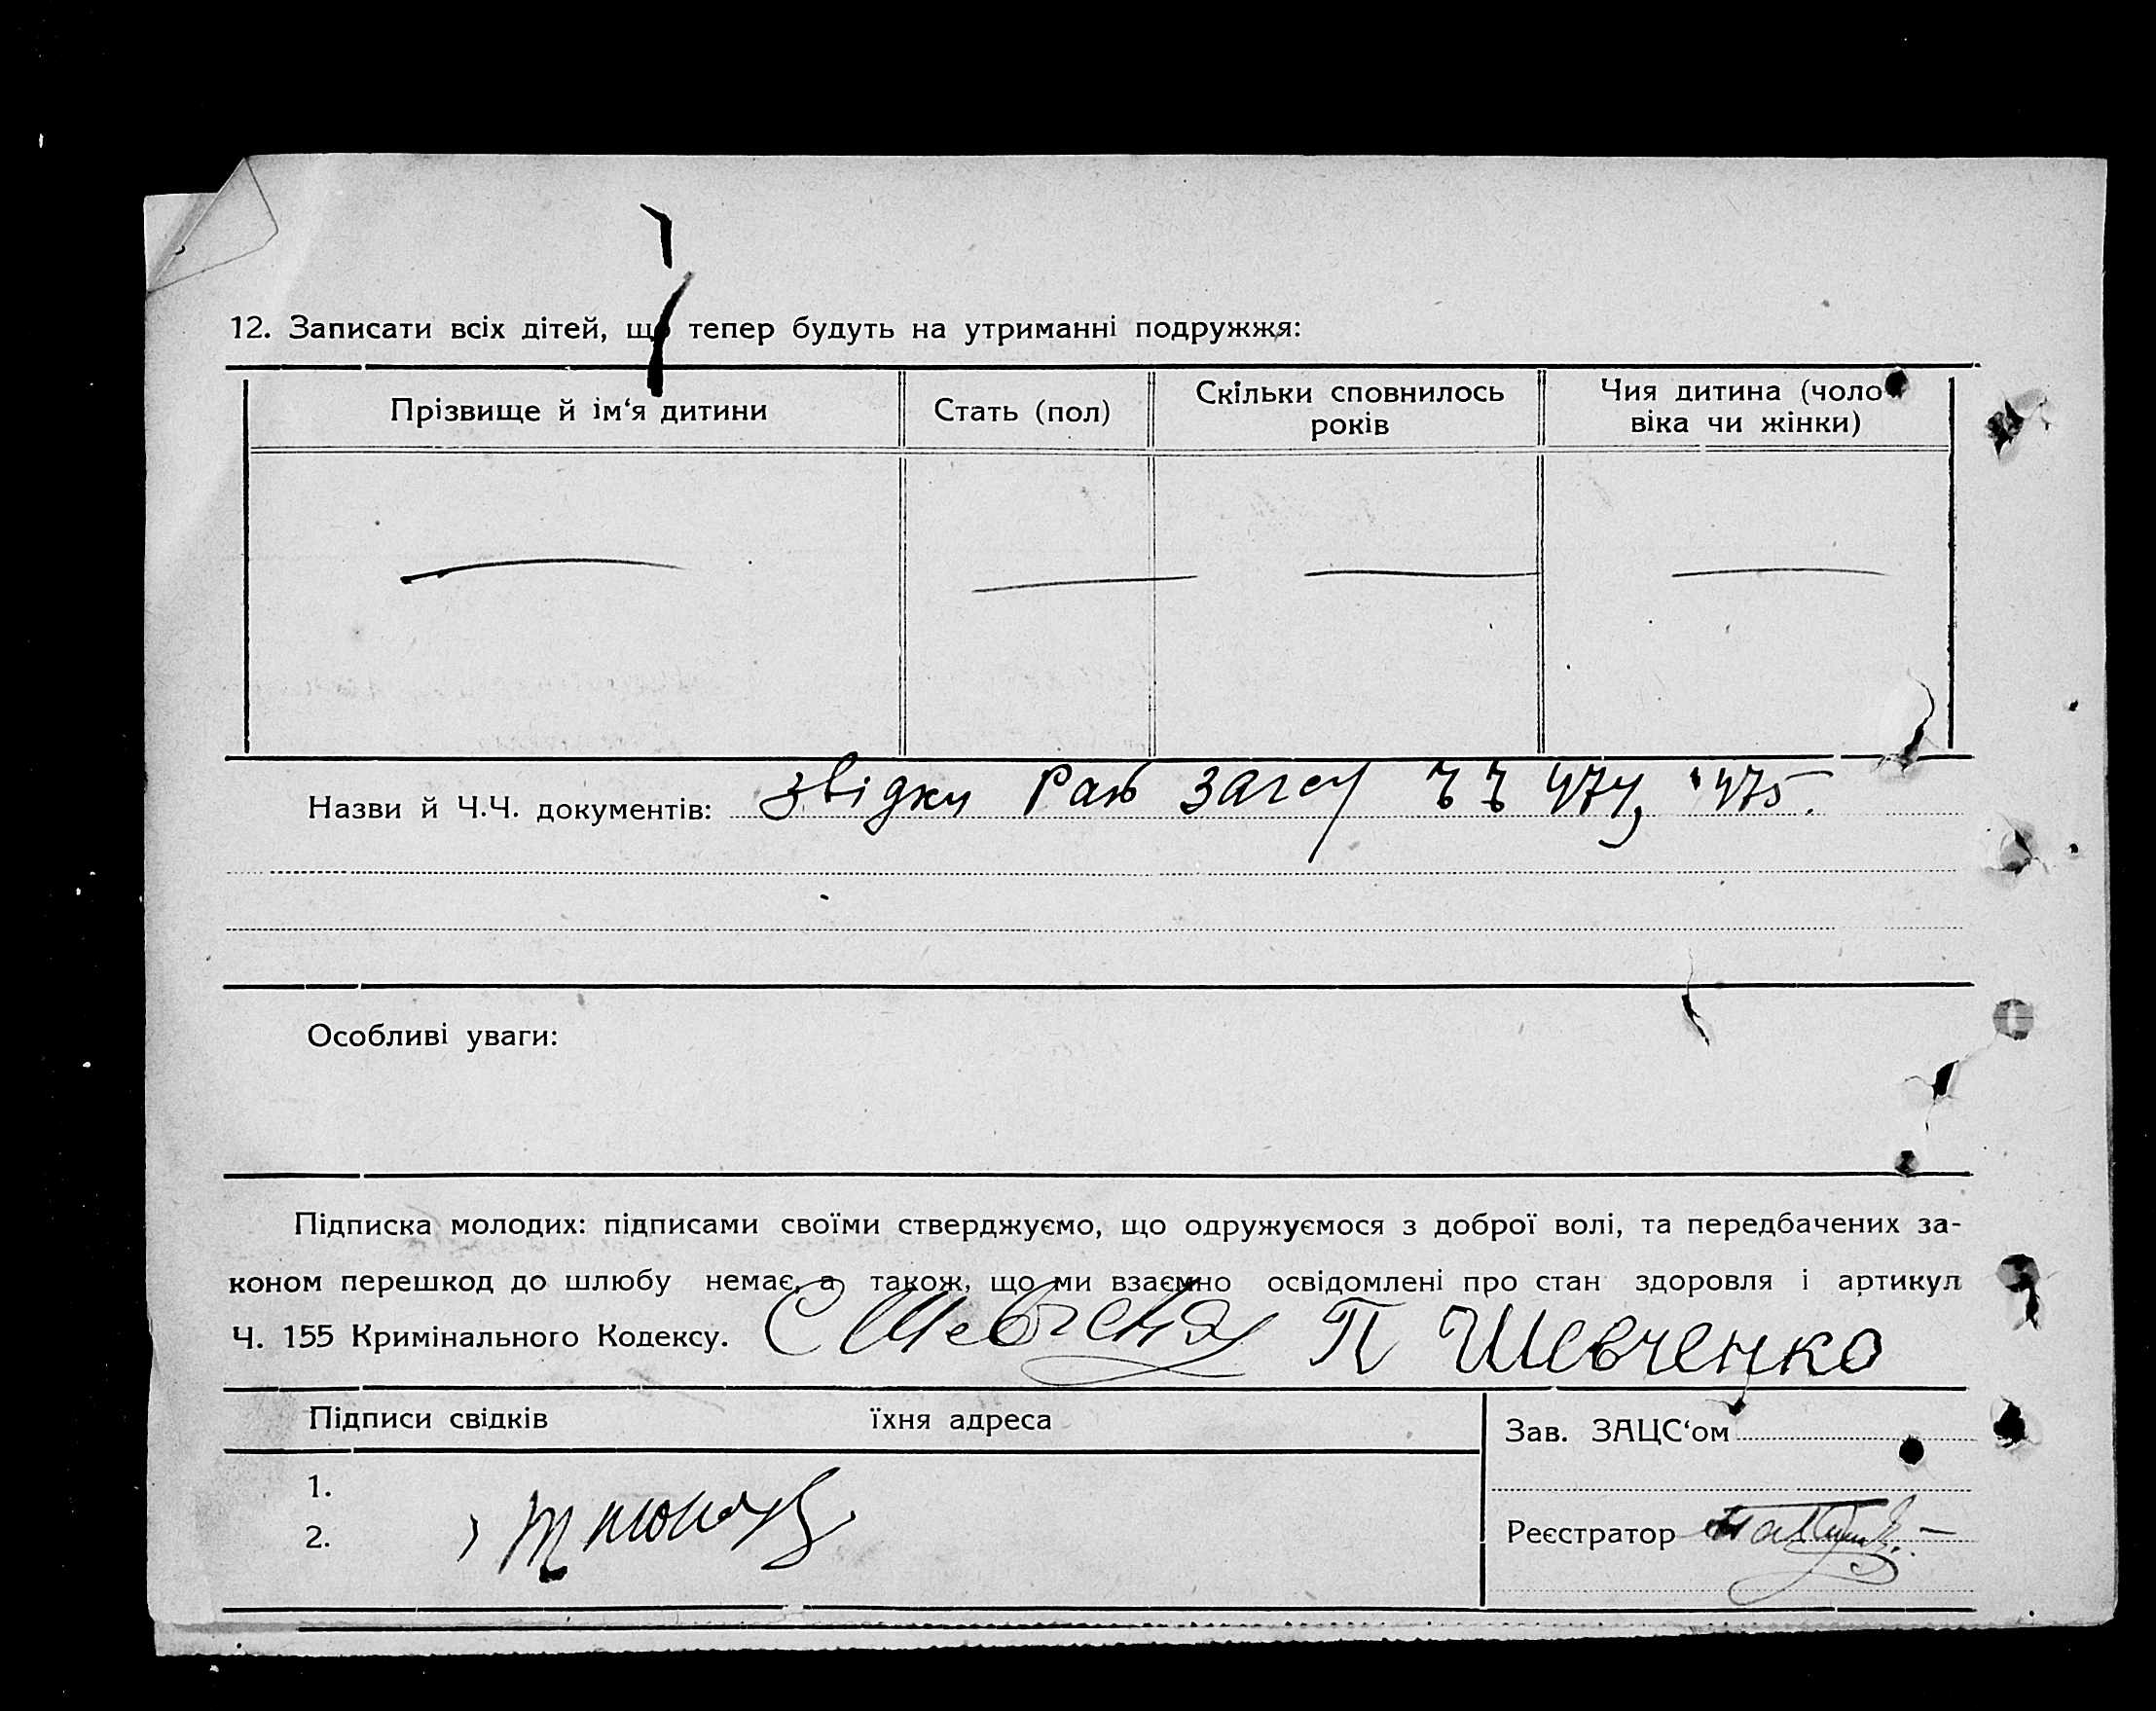 12. Записати всіх дітей, що тепер будуть на утриманні подружжя:
Прізвище й ім‘я дитини
Стать (пол)
Скільки сповнилось
років
Чия дитина (чоло-
віка чи жінки)
Назви й Ч.Ч. документів: звідки Раж загсу ч ч 474, 475.
Особливі уваги:
Підписка молодих: підписами своїми стверджуємо, що одружуємося з доброї волі, та передбачених за-
коном перешкод до шлюбу немає, а також, що ми взаємно освідомлені про стан здоровля і артикул
Ч. 155 Кримінального Кодексу. С Шевченко П Шевченко
Підписи свідків їхня адреса
Зав. ЗАЦС‘ом
1.
2.
Реєстратор